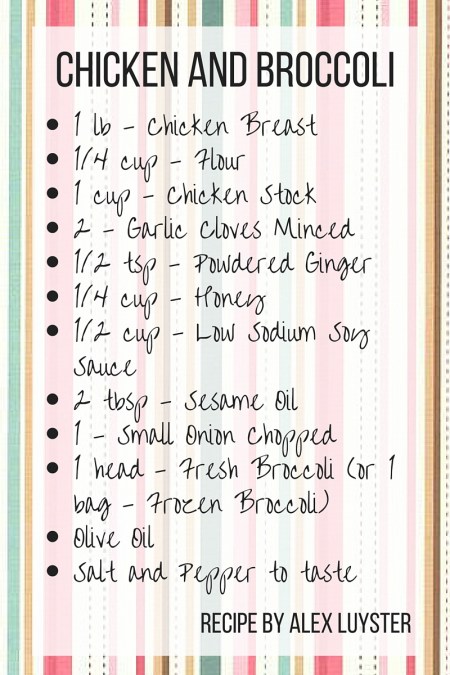 CHICKEN AND BROCCOLI
• 1 lb - Chicken Breast
• 1/4 cup - Flour
• 1 cup - Chicken Stock
• 2 - Garlic Cloves Minced
• 1/2 tsp - Powdered Ginger
• 1/4 cup - Honey
• 1/2 cup - Low Sodium Soy
Sauce
• 2 tbsp - Sesame Oil
• 1 - Small Onion Chopped
• 1 head - Fresh Broccoli (or 1
bag - Frozen Broccoli)
• Olive Oil
• Salt and Pepper to taste
RECIPE BY ALEX LUYSTER